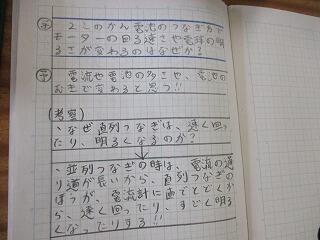 2このかん電池のつなぎ方で
モーターの回る速さや電球の明
るさが変わるのはなぜか?
電流や電池の多さや、電池の
おきで変わると思う!!
(考察)
、なぜ直列つなぎは、速く回っ
たり、明るくなるのか?
、並列つなぎの時は、電流の通
り道が長いから、直列つなぎの
ほうが、電流計に直でとどくか
ら、速く回ったり、すごく明る
くなったりする!!